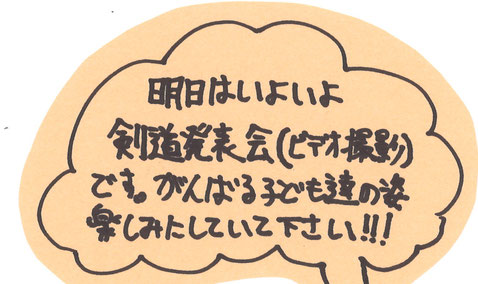 明日はいよいよ
剣道発表会(ビデオ撮影)
です。がんばる子ども達の姿
楽しみにしていて下さい!!!